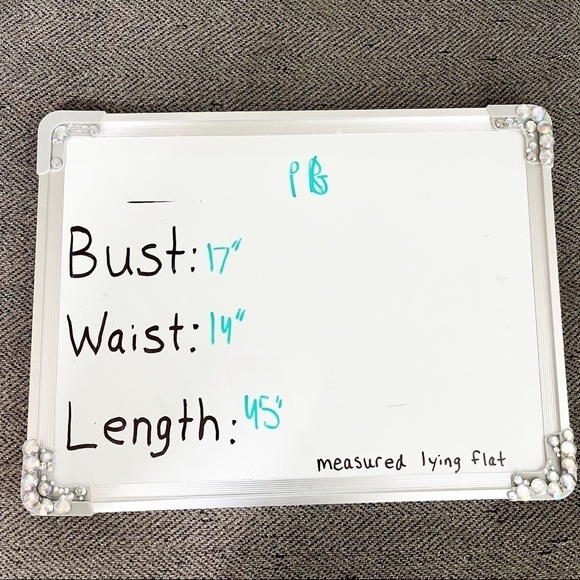 PB
Bust: 17"
Waist: 14"
Length: 45"
measured lying flat